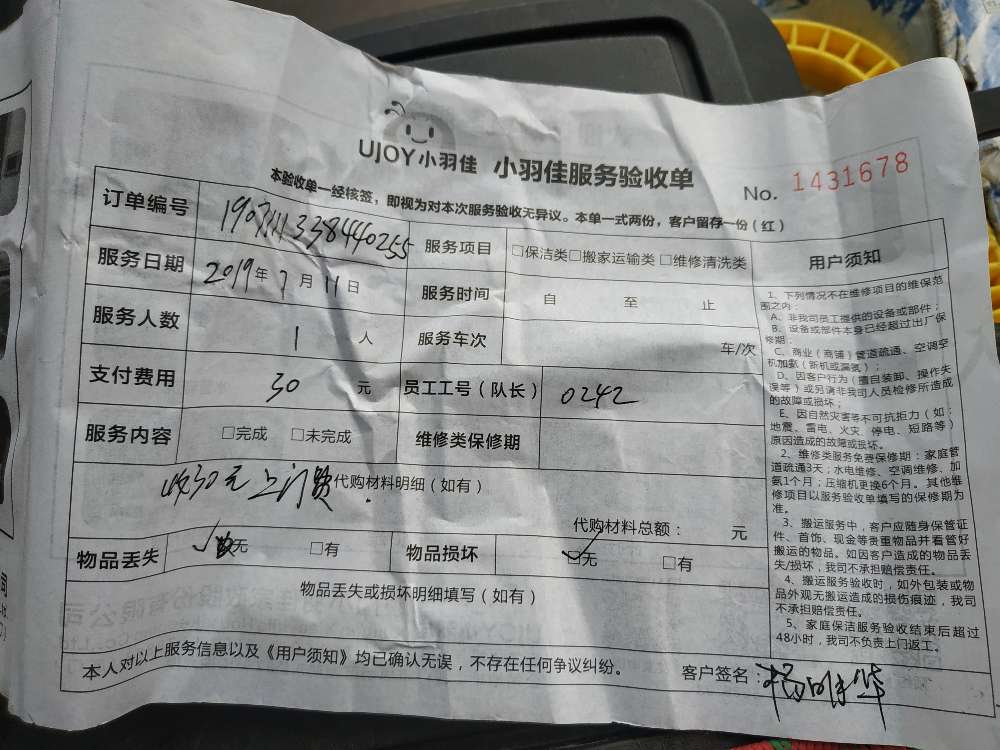 UJOY小羽佳 小羽佳服务验收单
No. 1431678
本验收单一经核签，即视为对本次服务验收无异议。本单一式两份，客户留存一份（红）
订单编号 1907111338440255 服务项目 □保洁类□搬家运输类□维修清洗类
服务日期 2019年7月11日 服务时间 自 至 止
服务人数 1 人 服务车次 车/次
支付费用 30 元 员工工号（队长） 0242
服务内容 □完成 □未完成 维修类保修期
收30元上门费 代购材料明细（如有）
代购材料总额： 元
物品丢失 □无 □有 物品损坏 □无 □有
物品丢失或损坏明细填写（如有）
本人对以上服务信息以及《用户须知》均已确认无误，不存在任何争议纠纷。 客户签名：
用户须知
1、下列情况不在维修项目的维保范
围之内：
A、非我司员工提供的设备或部件；
B、设备或部件本身已经超过出厂保
修期；
C、商业（商铺）管道疏通、空调空
机加氨（新机或漏氨）；
D、因客户行为（擅自装卸、操作失
误等）或另请非我司人员检修所造成
的故障或损坏；
E、因自然灾害等不可抗拒力（如：
地震、雷电、火灾、停电、短路等）
原因造成的故障或损坏。
2、维修类服务免器保修期：家庭管
道疏通3天；水电维修、空调维修、加
氨1个月；压缩机更换6个月。其他维
修项目以服务验收单填写的保修期为
准。
3、搬运服务中，客户应随身保管证
件、首饰、现金等贵重物品并看管好
搬运的物品。如因客户造成的物品丢
失/损坏，我司不承担赔偿责任。
4、搬运服务验收时，如外包装或物
品外观无搬运造成的损伤痕迹，我司
不承担赔偿责任。
5、家庭保洁服务验收结束后超过
48小时，我司不负责上门返工。